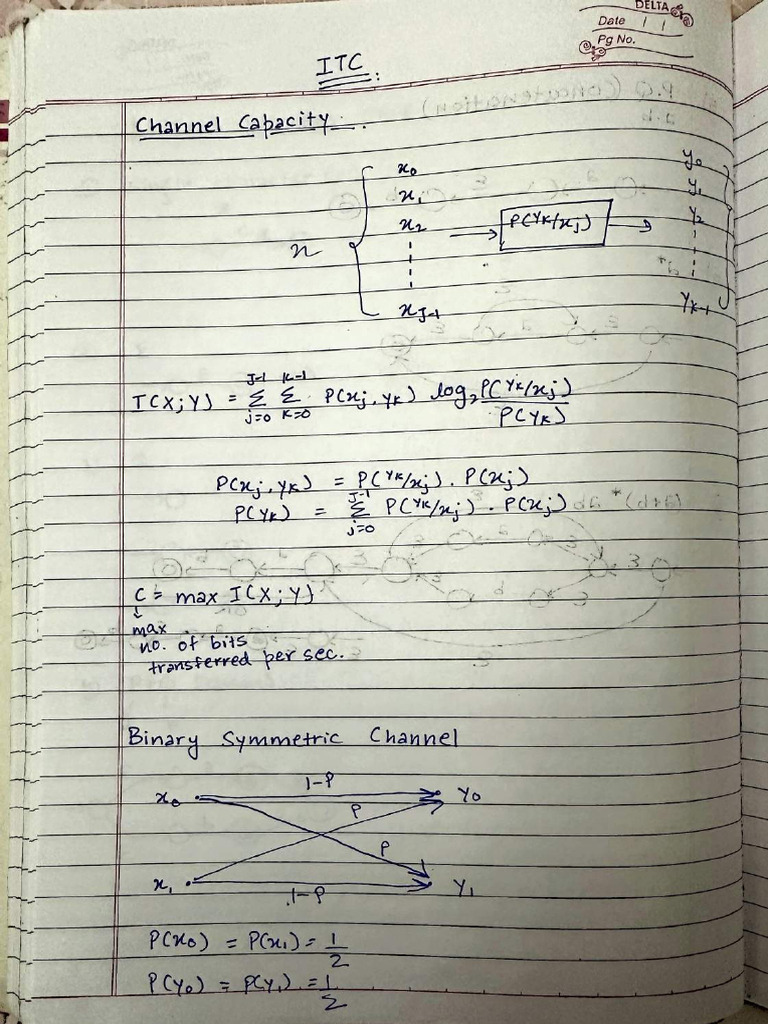 DELTA
Date / /
Pg No.
ITC
Channel Capacity
x₀ y₀
x₁ y₁
x₂ P(Yk/xj) Y₂
x
xJ-1 Yk-1
I(X;Y) = J-1 Σ j=0 K-1 Σ K=0 P(xj, yk) log₂ P(Yk/xj) / P(Yk)
P(xj, yk) = P(Yk/xj) . P(xj)
P(Yk) = J-1 Σ j=0 P(Yk/xj) . P(xj)
C = max I(X;Y)
max
no. of bits
transferred per sec.
Binary Symmetric Channel
1-P
x₀ Y₀
P
P
x₁ Y₁
1-P
P(x₀) = P(x₁) = 1/2
P(Y₀) = P(Y₁) = 1/2